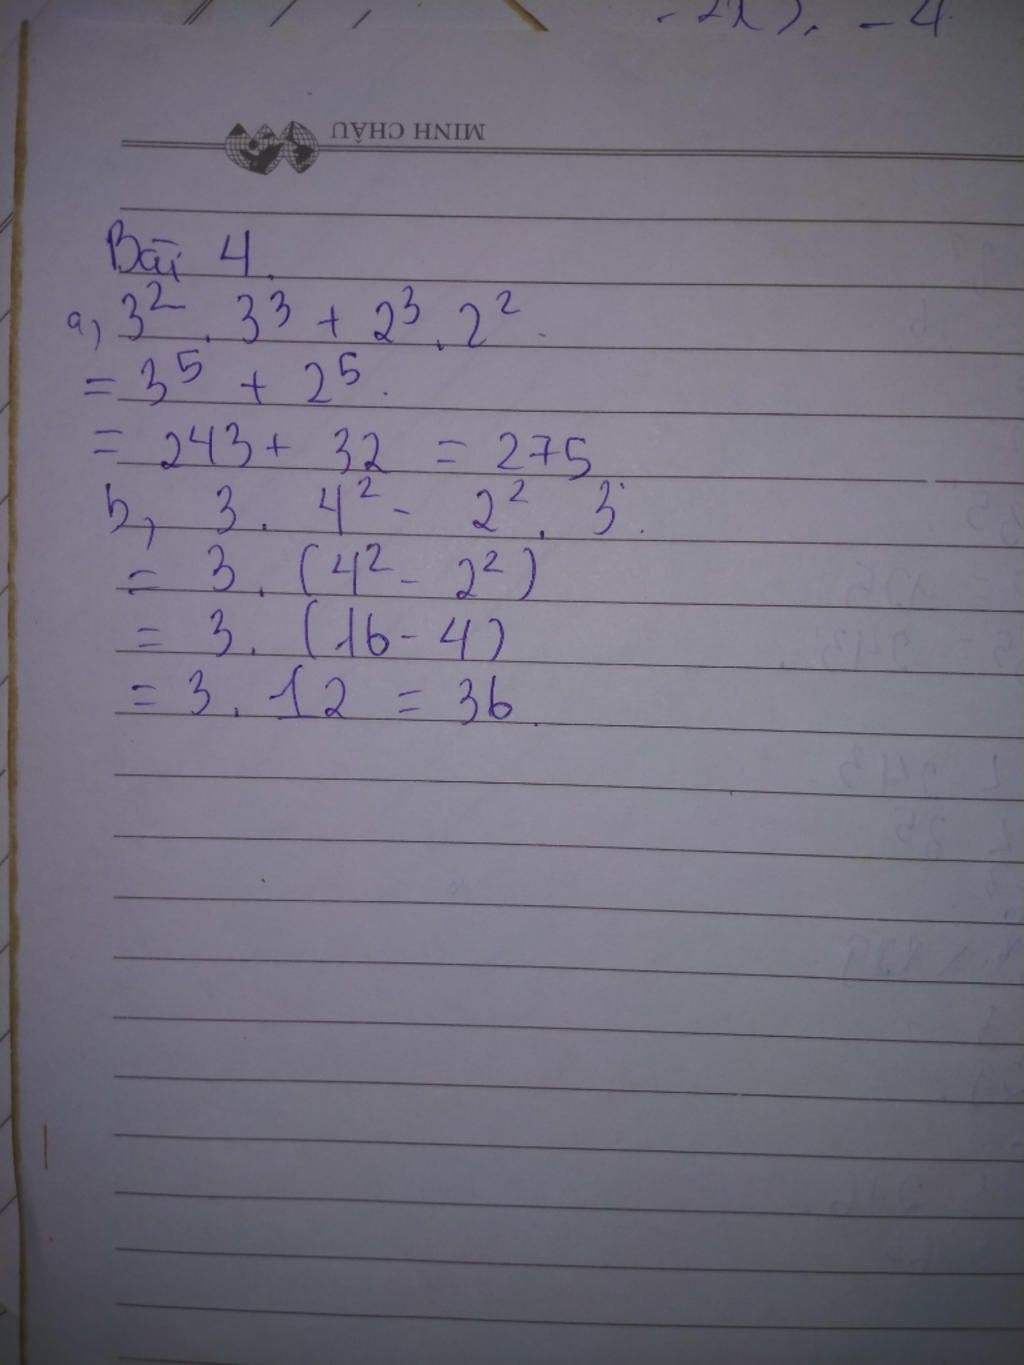 - 4
MINH CHÂU
Bài 4.
a, 3² . 3³ + 2³ . 2² .
= 3⁵ + 2⁵ .
= 243 + 32 = 275
b, 3 . 4² - 2² . 3 .
= 3 . (4² - 2²)
= 3 . (16 - 4)
= 3 . 12 = 36 .